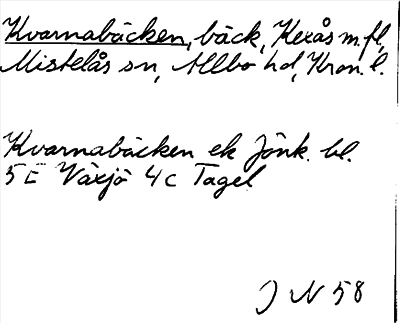 Kvarnabäcken, bäck, Kexås m.fl,
Mistelås sn, Allbo hd, Kron. l.
Kvarnabäcken ek Jönk. bl.
5 E Växjö 4 c Tagel
J N 58